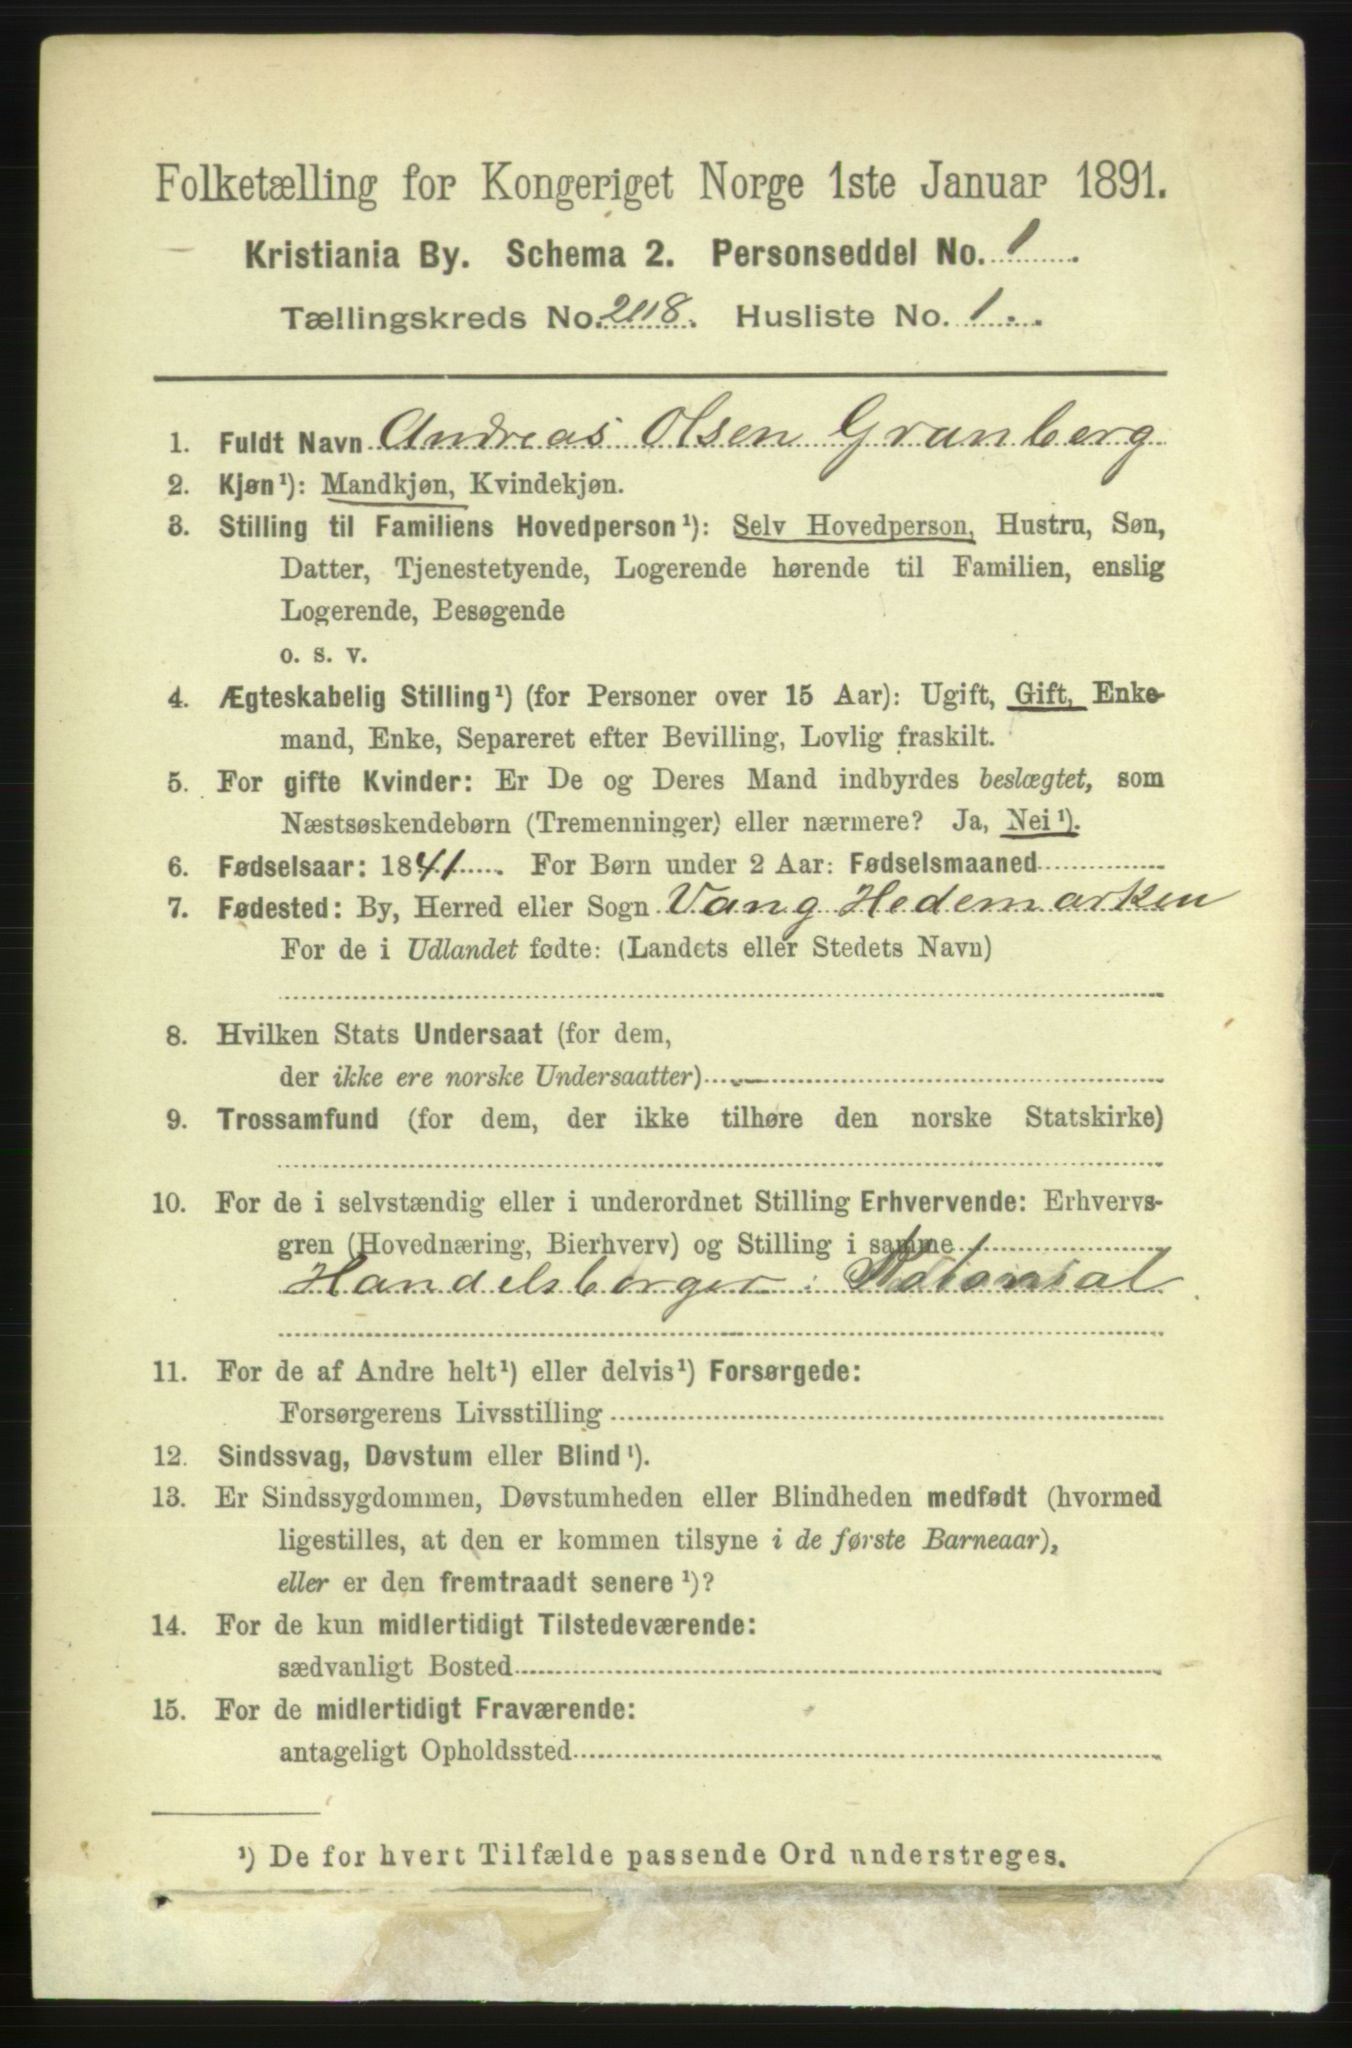 Folketælling for Kongeriget Norge 1ste Januar 1891.
Kristiania By. Schema 2. Personseddel No. 1.
Tællingskreds No. 218. Husliste No. 1.
1. Fuldt Navn Andreas Olsen Granberg
2. Kjøn¹): Mandkjøn, Kvindekjøn.
3. Stilling til Familiens Hovedperson¹): Selv Hovedperson, Hustru, Søn,
Datter, Tjenestetyende, Logerende hørende til Familien, enslig
Logerende, Besøgende
o. s. v.
4. Ægteskabelig Stilling¹) (for Personer over 15 Aar): Ugift, Gift, Enke-
mand, Enke, Separeret efter Bevilling, Lovlig fraskilt.
5. For gifte Kvinder: Er De og Deres Mand indbyrdes beslægtet, som
Næstsøskendebørn (Tremenninger) eller nærmere? Ja, Nei¹).
6. Fødselsaar: 1841. For Børn under 2 Aar: Fødselsmaaned
7. Fødested: By, Herred eller Sogn Vang Hedemarken
For de i Udlandet fødte: (Landets eller Stedets Navn)
8. Hvilken Stats Undersaat (for dem,
der ikke ere norske Undersaatter)
9. Trossamfund (for dem, der ikke tilhøre den norske Statskirke)
10. For de i selvstændig eller i underordnet Stilling Erhvervende: Erhvervs-
gren (Hovednæring, Bierhverv) og Stilling i samme
Handelsborger i Kolonial
11. For de af Andre helt¹) eller delvis¹) Forsørgede:
Forsørgerens Livsstilling
12. Sindssvag, Døvstum eller Blind¹).
13. Er Sindssygdommen, Døvstumheden eller Blindheden medfødt (hvormed
ligestilles, at den er kommen tilsyne i de første Barneaar),
eller er den fremtraadt senere¹)?
14. For de kun midlertidigt Tilstedeværende:
sædvanligt Bosted
15. For de midlertidigt Fraværende:
antageligt Opholdssted
¹) De for hvert Tilfælde passende Ord understreges.